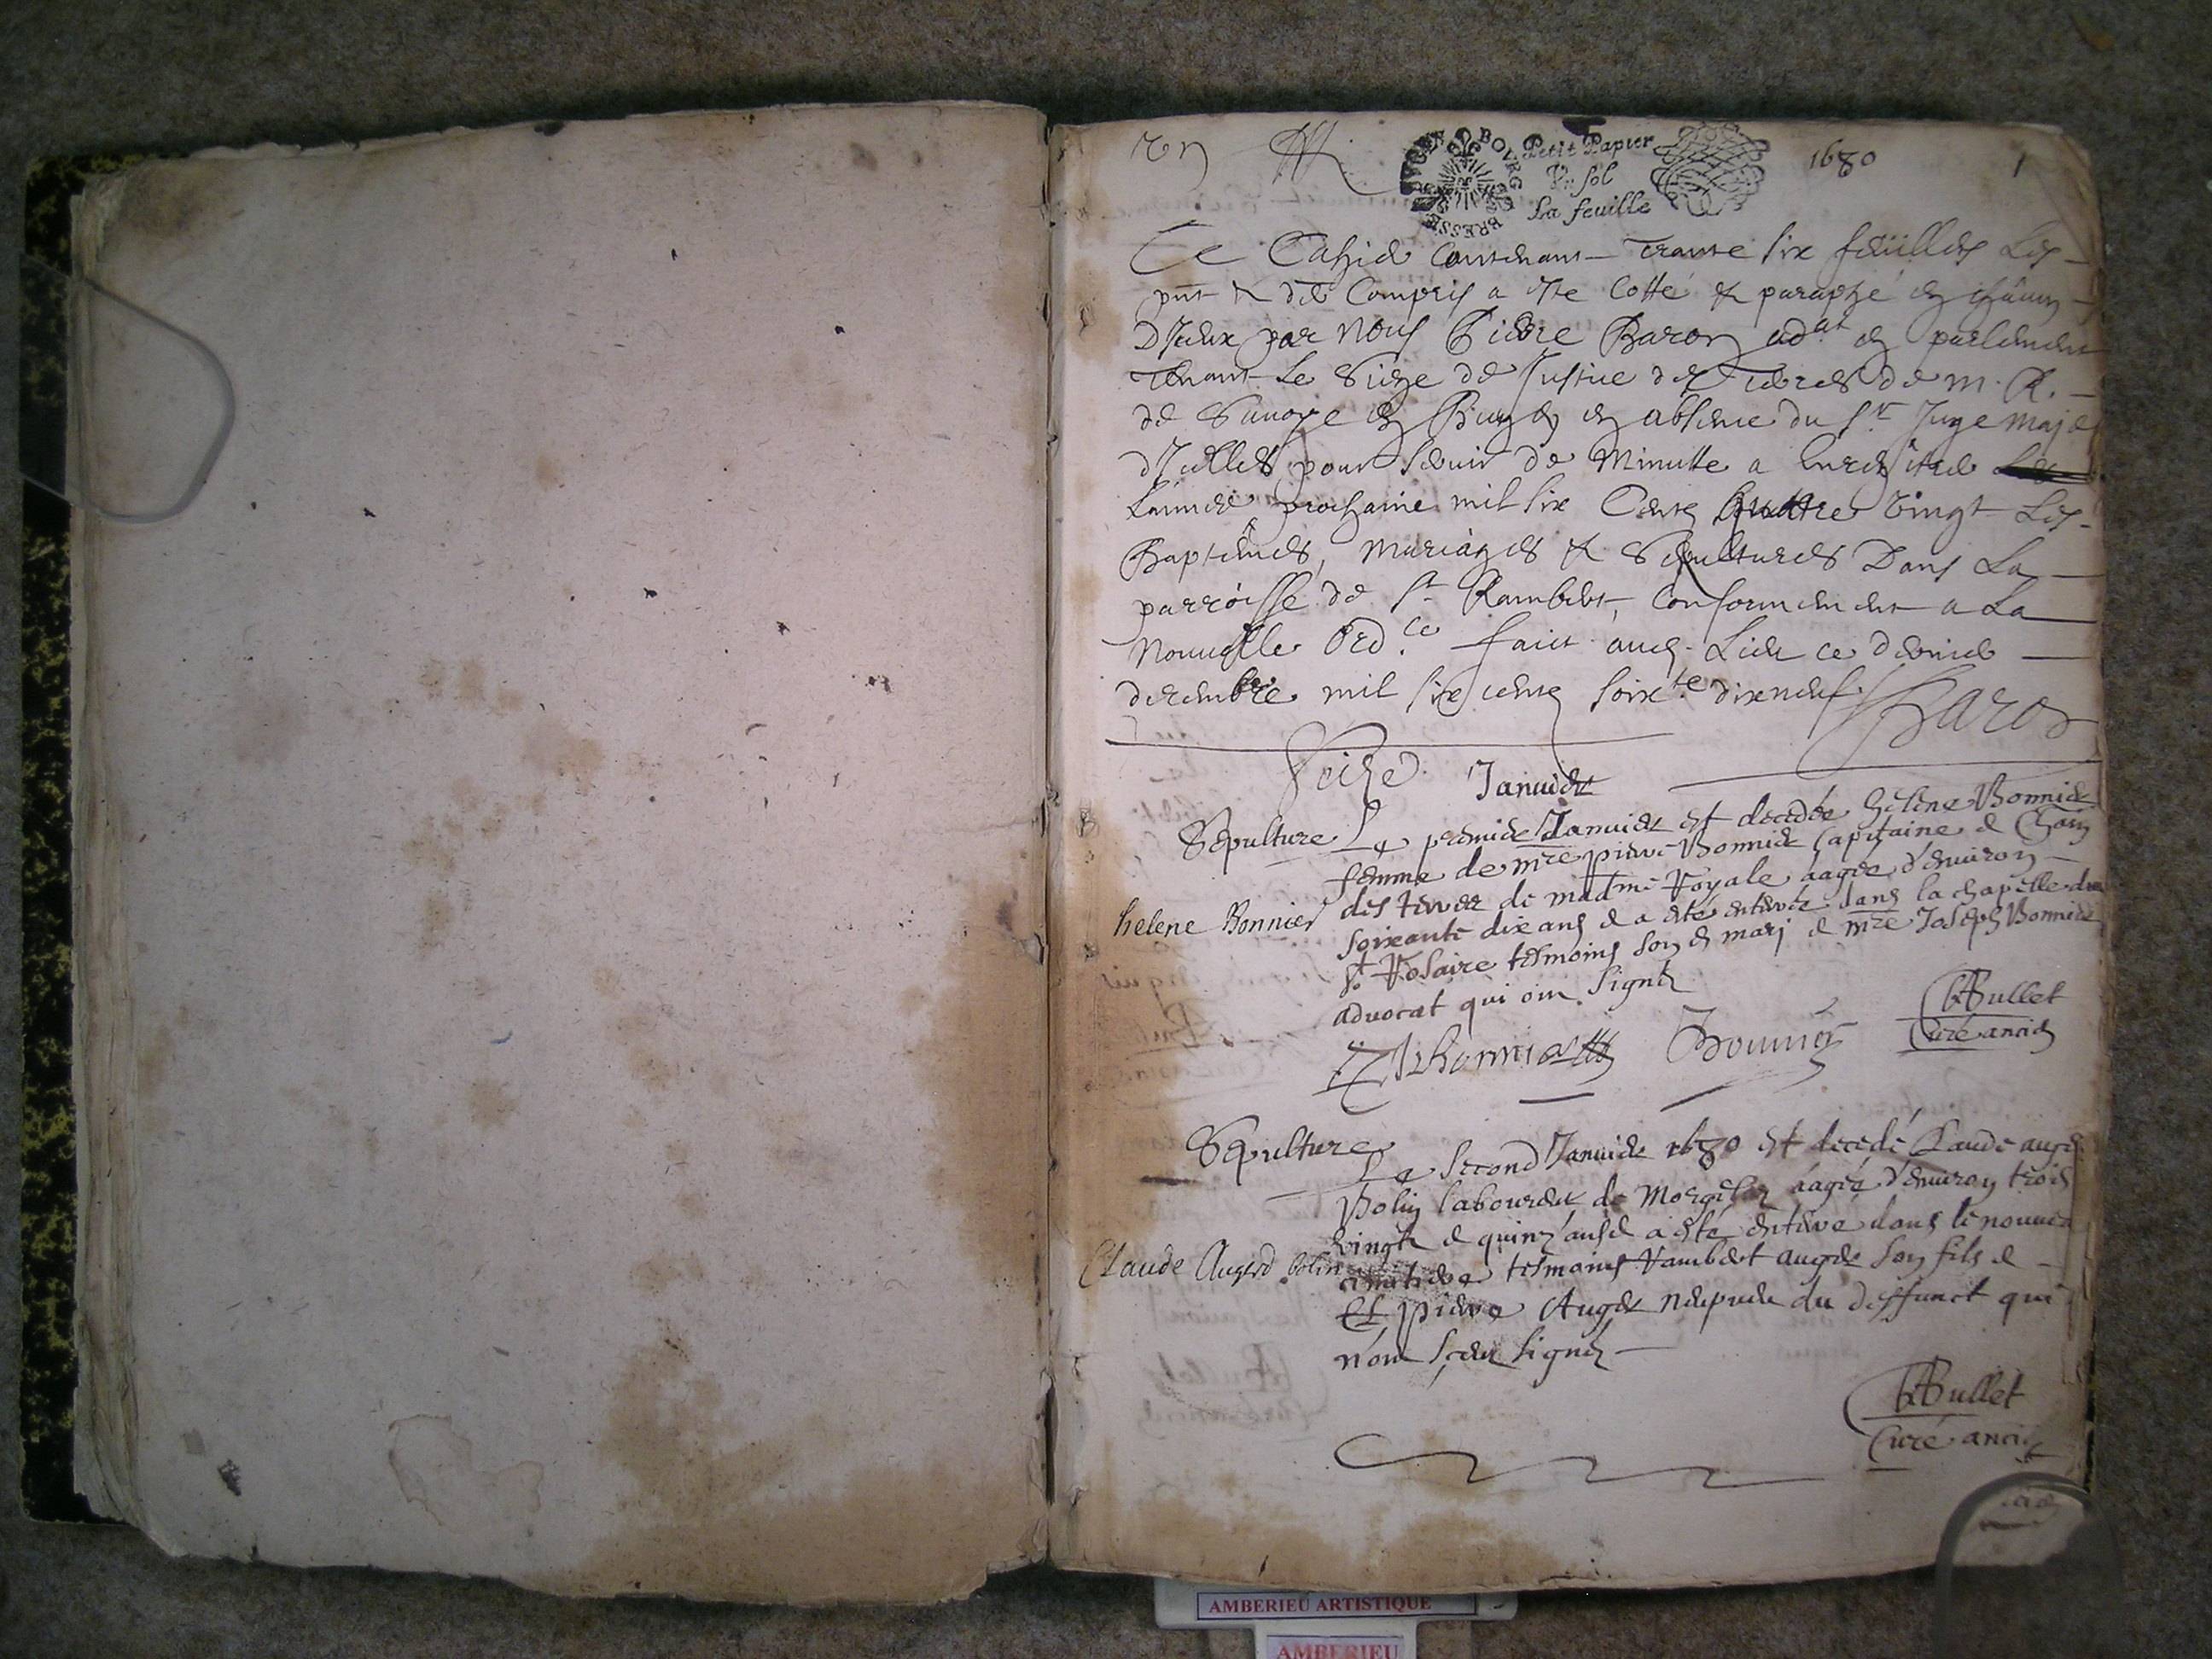 un
BOURG BRESSE
Petit Papier
Un sol
La feuille
1680
1
Ce Cahier Contenant Trante six feüilles Les
pnt & der Compris a este Cotté & paraphé en chacun
D'Iceux par Nous Pierre Baron adat en parlement
Tenant Le Siege de Justice des Terres de M. R.
de Sauoye en Bugey en absence du Sr Juge Maje
d'Icelles pour seruir de Minutte a
L'année prochaine mil six Cents quattre Vingt Les
Baptêmes, Mariages & Sepultures Dans La
parroisse de St Rambert, Conformement a La
Nouuelle Ord.ce faict aud. Lieu ce dernier
decembre mil six cents soixte dixneuf Baron
Januier
Sepulture Le premier Januier est decedée helene Bonnier
femme de mre pierre Bonnier Capitaine e Chast
des terres de madme Royale aagée d'enuiron
helene Bonnier
soixante dix ans e a esté enterrée dans la chapelle du
St Rosaire tesmoins son d mary e mre Joseph Bonnier
aduocat qui ont signé
Bonnier Bonnier
Bullet
Curé ancien
Sepulture
Le second Januier 1680 est decedé Claude auger
Bolin laboureur de Morgelas aagée d'enuiron trois
vingts e quinz ans e a esté enterré dans le nouueau
Claude Augerd bolin
cimetiere tesmoins Rambert auger son fils e
et pierre Auger nepueu du deffunct qui
n'ont sceu signer
Bullet
Curé ancien
AMBERIEU ARTISTIQUE
AMBERIEU